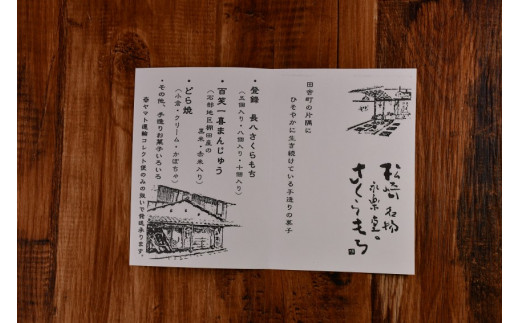 松崎名物
永楽堂
さくらもち
田舎町の片隅に
ひそやかに生き続けている手造りの菓子
・登録 長八さくらもち
(三個入り・八個入り・十個入り)
・百笑一喜まんじゅう
(石部地区棚田産の
黒米・赤米入り)
・どら焼
(小倉・クリーム・かぼちゃ)
・その他、手造りお菓子いろいろ
※ヤマト運輸コレクト便のみの扱いで発送承ります。